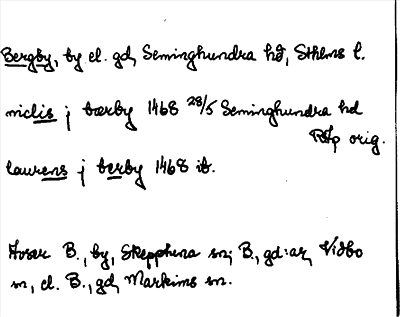 Bergby, by el. gd, Seminghundra hd, Sthlms l.
niclis j bærby 1468 28/5 Seminghundra hd
RAp orig.
laurens j berby 1468 ib.
Avser B., by, Skepptuna sn; B., gd:ar, Vidbo
sn, el. B., gd, Markims sn.